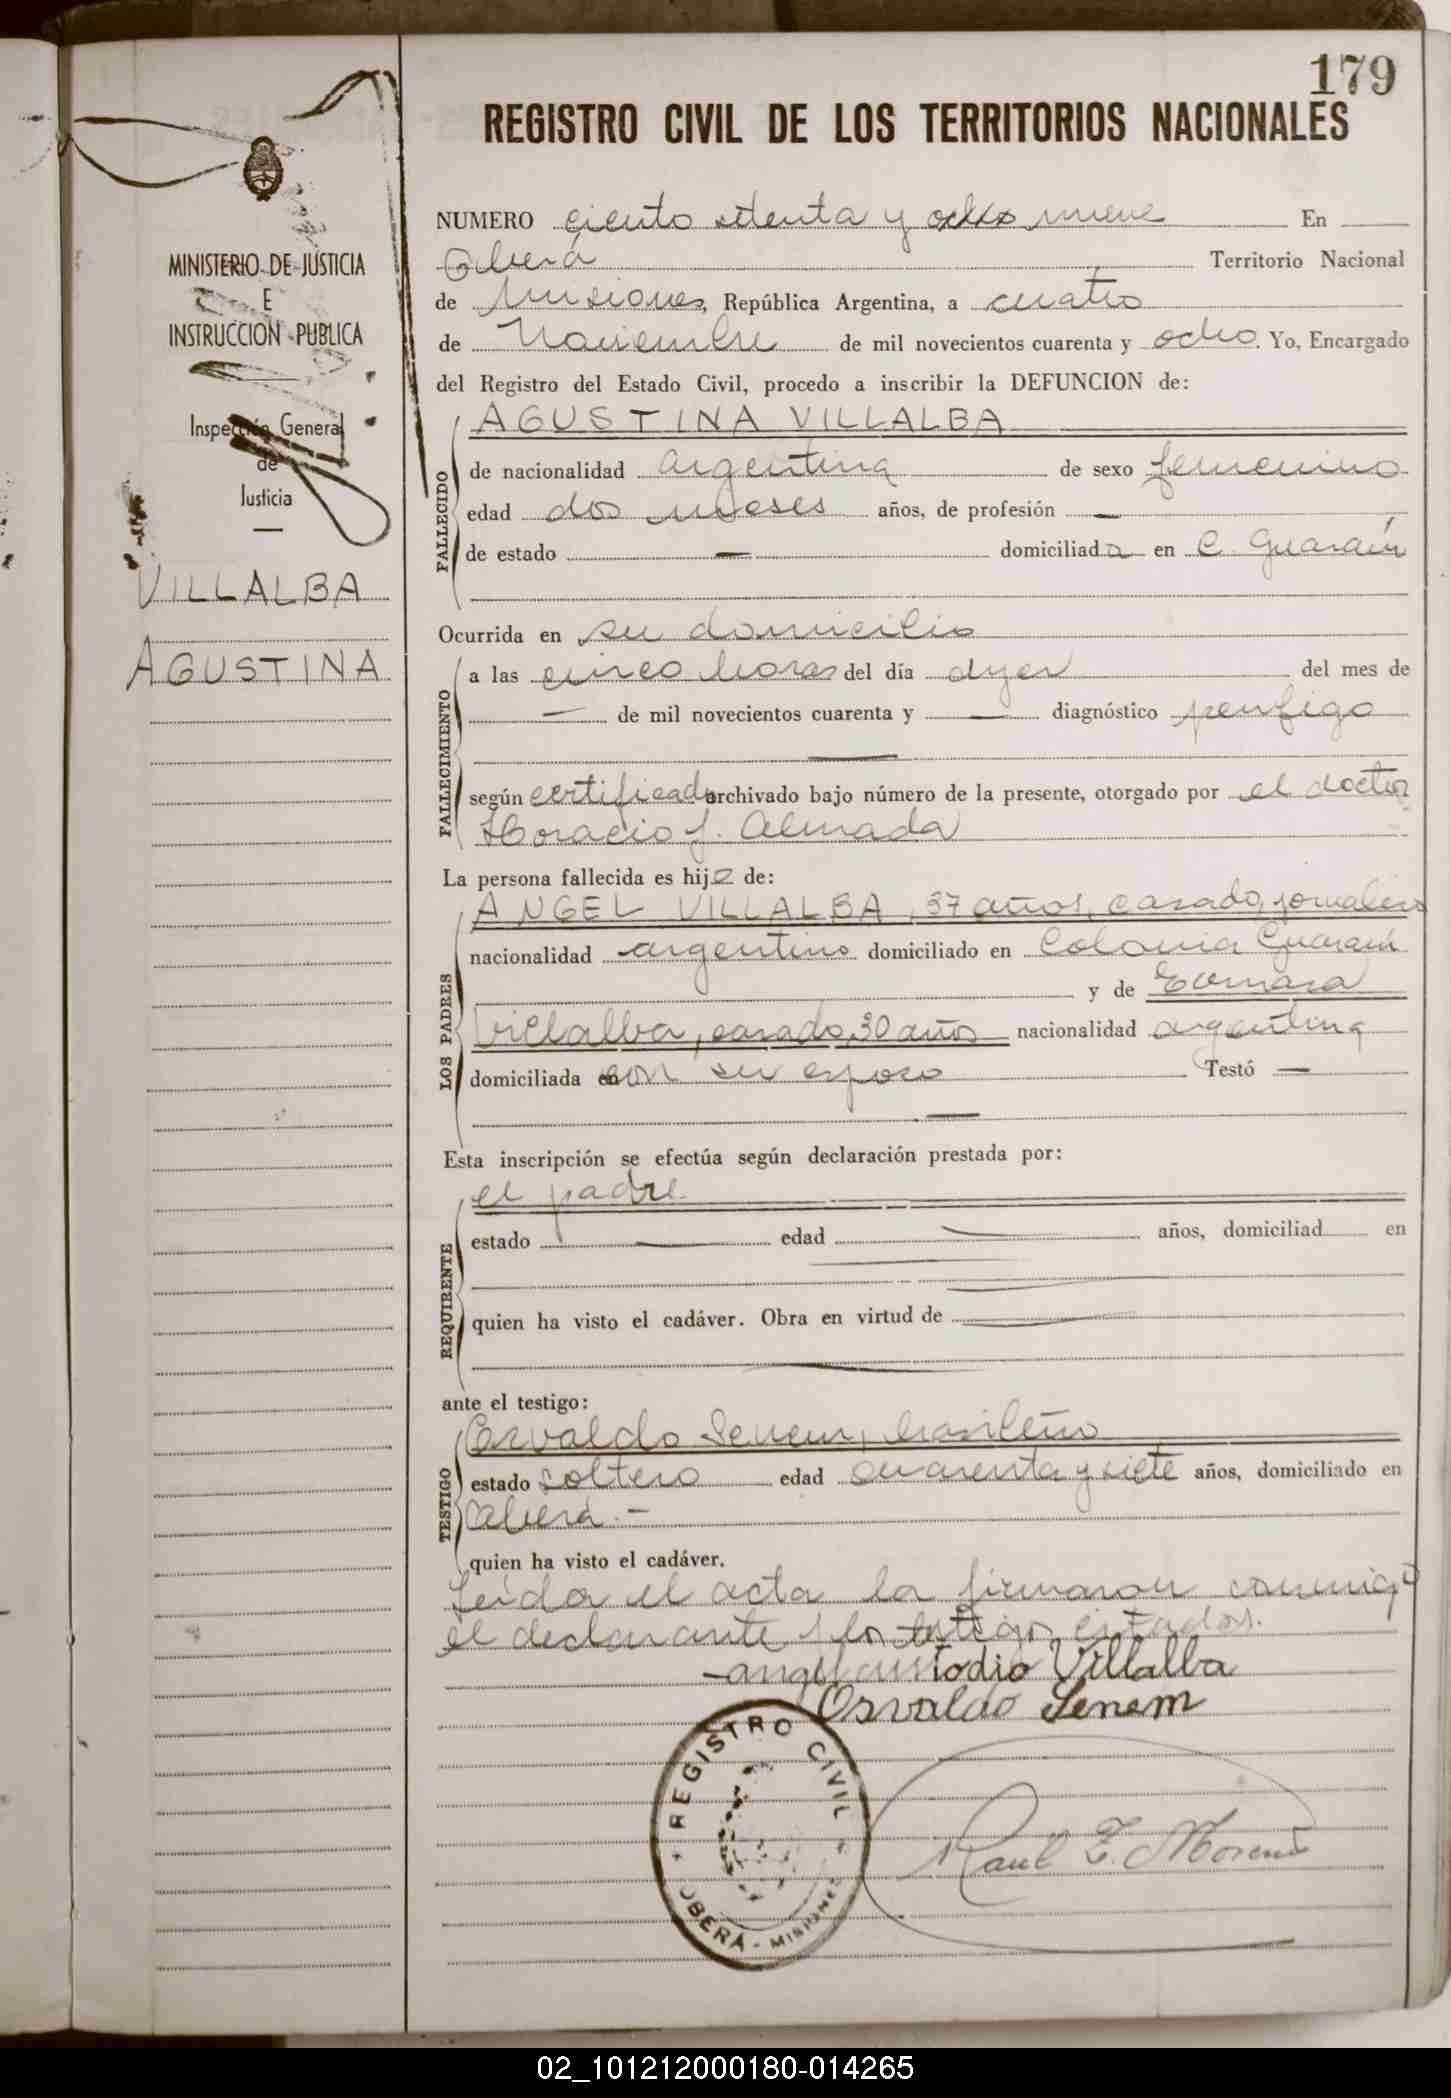 179
REGISTRO CIVIL DE LOS TERRITORIOS NACIONALES
MINISTERIO DE JUSTICIA
E
INSTRUCCION PUBLICA
Inspección General
de
Justicia
VILLALBA
AGUSTINA
NUMERO ciento setenta y ocho nueve En
Oberá Territorio Nacional
de Misiones, República Argentina, a cuatro
de Noviembre de mil novecientos cuarenta y ocho. Yo, Encargado
del Registro del Estado Civil, procedo a inscribir la DEFUNCION de:
FALLECIDO
AGUSTINA VILLALBA
de nacionalidad argentina de sexo femenino
edad dos meses años, de profesión —
de estado — domiciliada en C. Guaraní
Ocurrida en su domicilio
FALLECIMIENTO
a las cinco horas del día ayer del mes de
— de mil novecientos cuarenta y — diagnóstico penfigo
—
según certificado archivado bajo número de la presente, otorgado por el doctor
Horacio J. Almada
La persona fallecida es hija de:
LOS PADRES
ANGEL VILLALBA, 37 años, casado, jornalero
nacionalidad argentino domiciliado en Colonia Guaraní
y de
Villalba, casada, 30 años nacionalidad argentina
domiciliada con su esposo Testó —
—
Esta inscripción se efectúa según declaración prestada por:
REQUIRENTE
el padre
estado — edad — años, domiciliad en
quien ha visto el cadáver. Obra en virtud de —
ante el testigo:
TESTIGO
Osvaldo Senem, brasileño
estado soltero edad cuarenta y siete años, domiciliado en
Oberá.—
quien ha visto el cadáver.
Leída el acta la firmaron conmigo
el declarante y los testigos citados.
angel custodio Villalba
Osvaldo Senem
REGISTRO CIVIL
OBERÁ - MISIONES
Raul E. Moreno
02_101212000180-014265